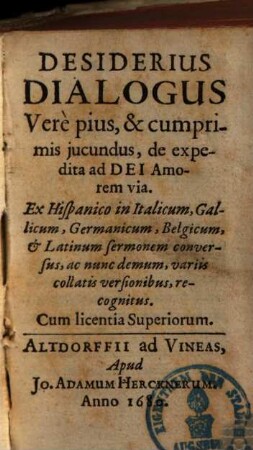 DESIDERIUS
DIALOGUS
Verè pius, & cumpri-
mis jucundus, de expe-
dita ad DEI Amo-
rem via.
Ex Hispanico in Italicum, Gal-
licum, Germanicum, Belgicum,
& Latinum sermonem conver-
sus, ac nunc demum, variis
collatis versionibus, re-
cognitus.
Cum licentia Superiorum.
ALTDORFFII ad VINEAS,
Apud
JO. ADAMUM HERCKNERUM.
Anno